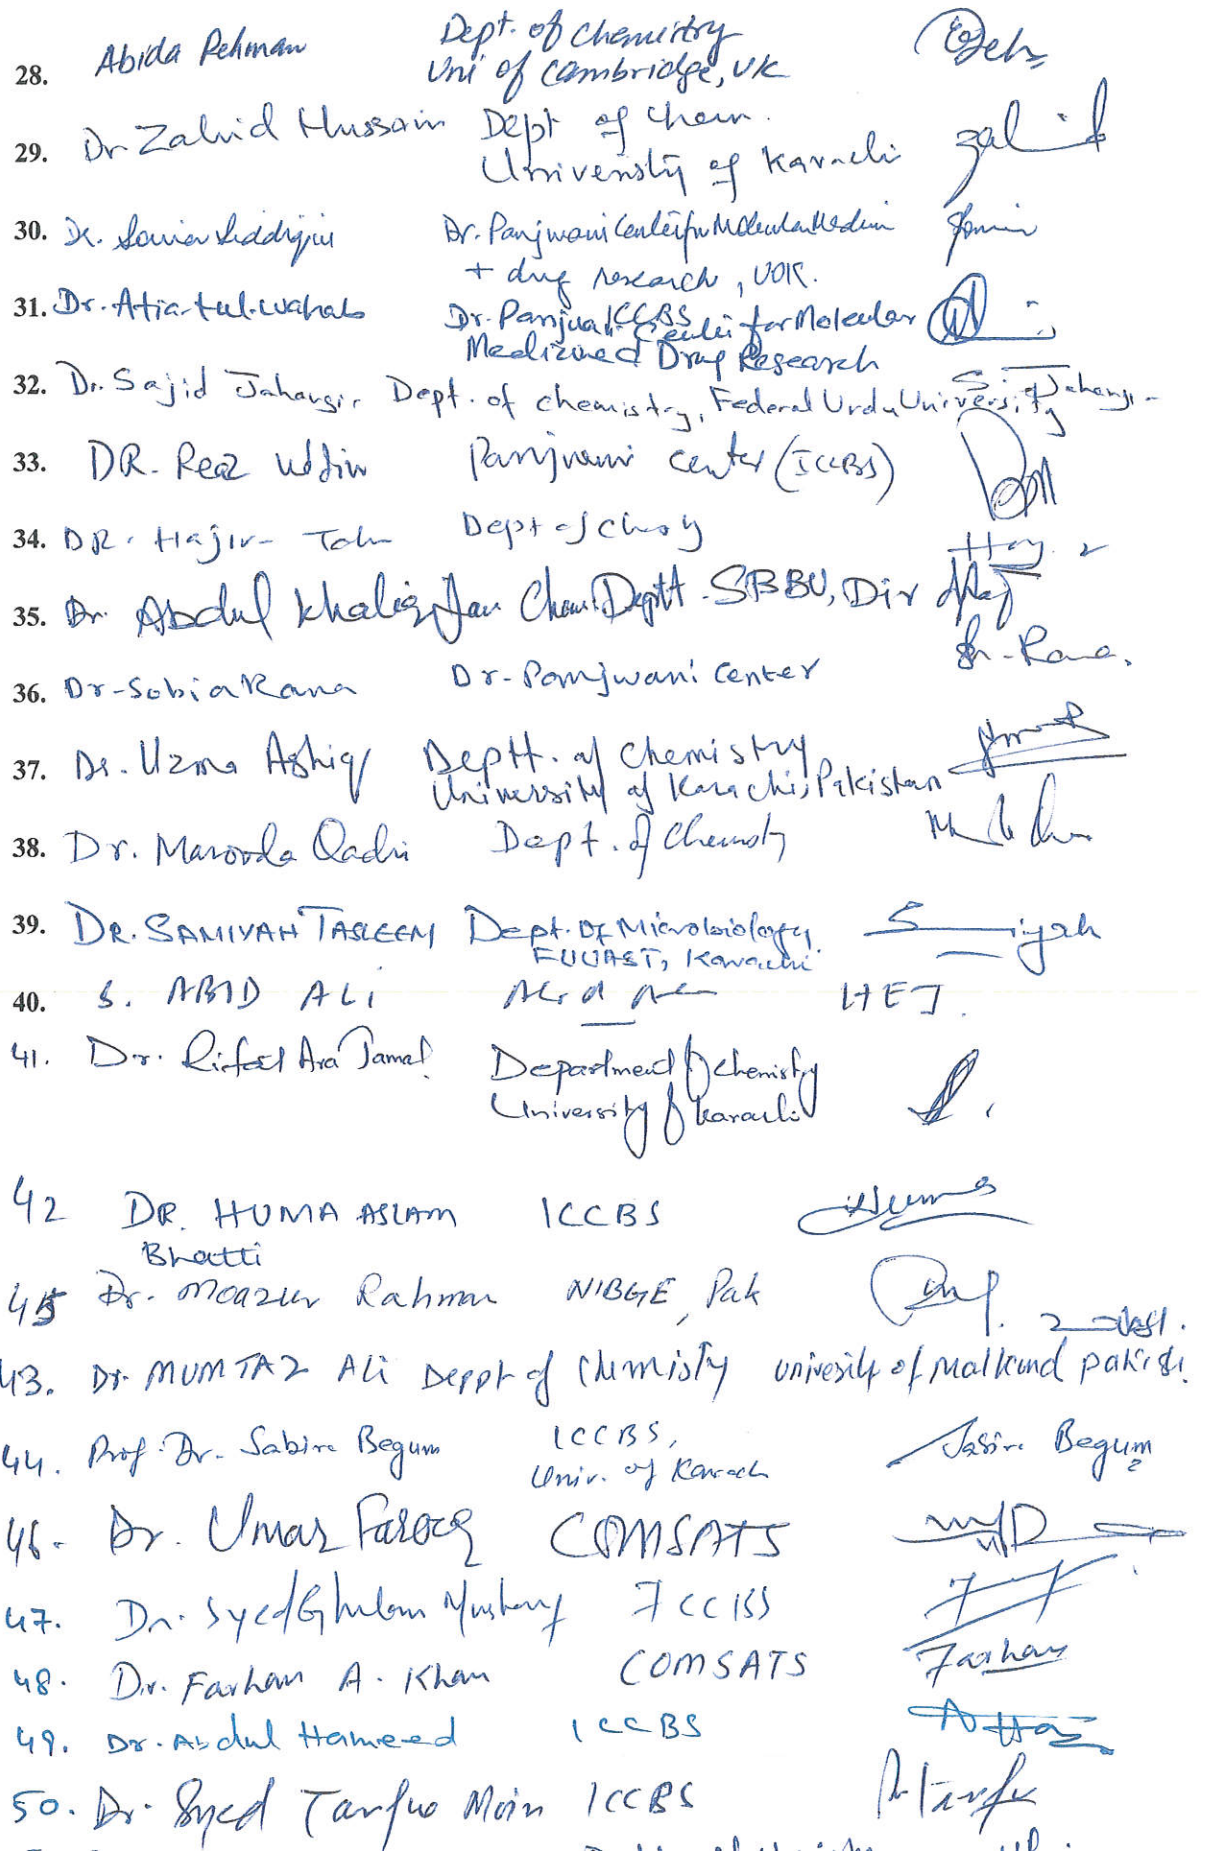 Abida Rehman Dept. of chemistry
28. Uni of Cambridge, UK
Dr Zahid Hussain Dept of Chem. Zahid
29. University of Karachi
30. Dr. Sonia Siddiqui Dr. Panjwani Center for Molecular Medicin
+ drug research, UOK.
31. Dr. Atia-tul-wahab ICCBS
Dr. Panjwani Center for Molecular
Medicine and Drug Research
32. Dr. Sajid Jahangir Dept. of chemistry, Federal Urdu University S. Jahangir
33. DR. Reaz Uddin Panjwani Center (ICCBS)
34. DR. Hajira Dept of
35. Dr Abdul Khaliq Jan Chem. Deptt. SBBU, Dir
36. Dr-Sobia Rana Dr-Panjwani Center Rana.
37. Dr. Uzma Ashiq Deptt. of Chemistry
University of Karachi, Pakistan
38. Dr. Masooda Qadri Dept. of Chemisty
39. DR. SAMIYAH TASLEEM Dept. Of Microbiology, Samiyah
FUUAST, Karachi
40. S. ABID ALI HEJ.
41. Dr. Rifat Ara Jamal Department of Chemistry
University of Karachi
42 DR. HUMA ASLAM ICCBS Huma
Bhatti
45 Dr. Moazur Rahman NIBGE, Pak
43. Dr. MUMTAZ Ali Deppt of Chemisty univesity of Malkand
44. Prof. Dr. Sabira Begum ICCBS, Sabira Begum
Univ. of Karachi
46. Dr. Umar Farooq COMSATS
47. Dr. Syed Ghulam ICCBS
48. Dr. Farhan A. Khan COMSATS Farhan
49. Dr. Abdul Hameed ICCBS
50. Dr. Syed Tarique Moin ICCBS